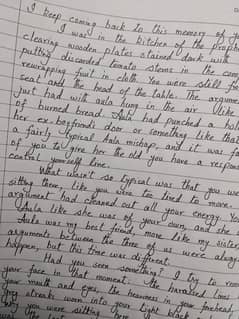 I keep coming back to this memory of yo
I was in the kitchen of the
clearing wooden plates stained dark with
putting discarded tomato stems in the com
rewrapping fruit in cloth. You were still
seat and the head of the table. The argume
just had with aula hung in the air like
of burned bread. Aula had punched a hol
her ex-boyfriends door or something like that
a fairly typical Aula mishap, and it was
of you to give her the old you have a respon
central yourself line.
What wasn't so typical was that you we
sitting there, like you were too tired to move.
argument had cleaned out all your energy. You
Ghala like she was of your own, and she
Aula was my best friend, more like my sister
arguments between the three of us were alway
happen, but this time was different.
Had you seen something? I try to
your face in that moment: the harassed lines
your mouth and eyes, the heaviness in your forehead,
streaks worn into your light black
you were sitting
was the last